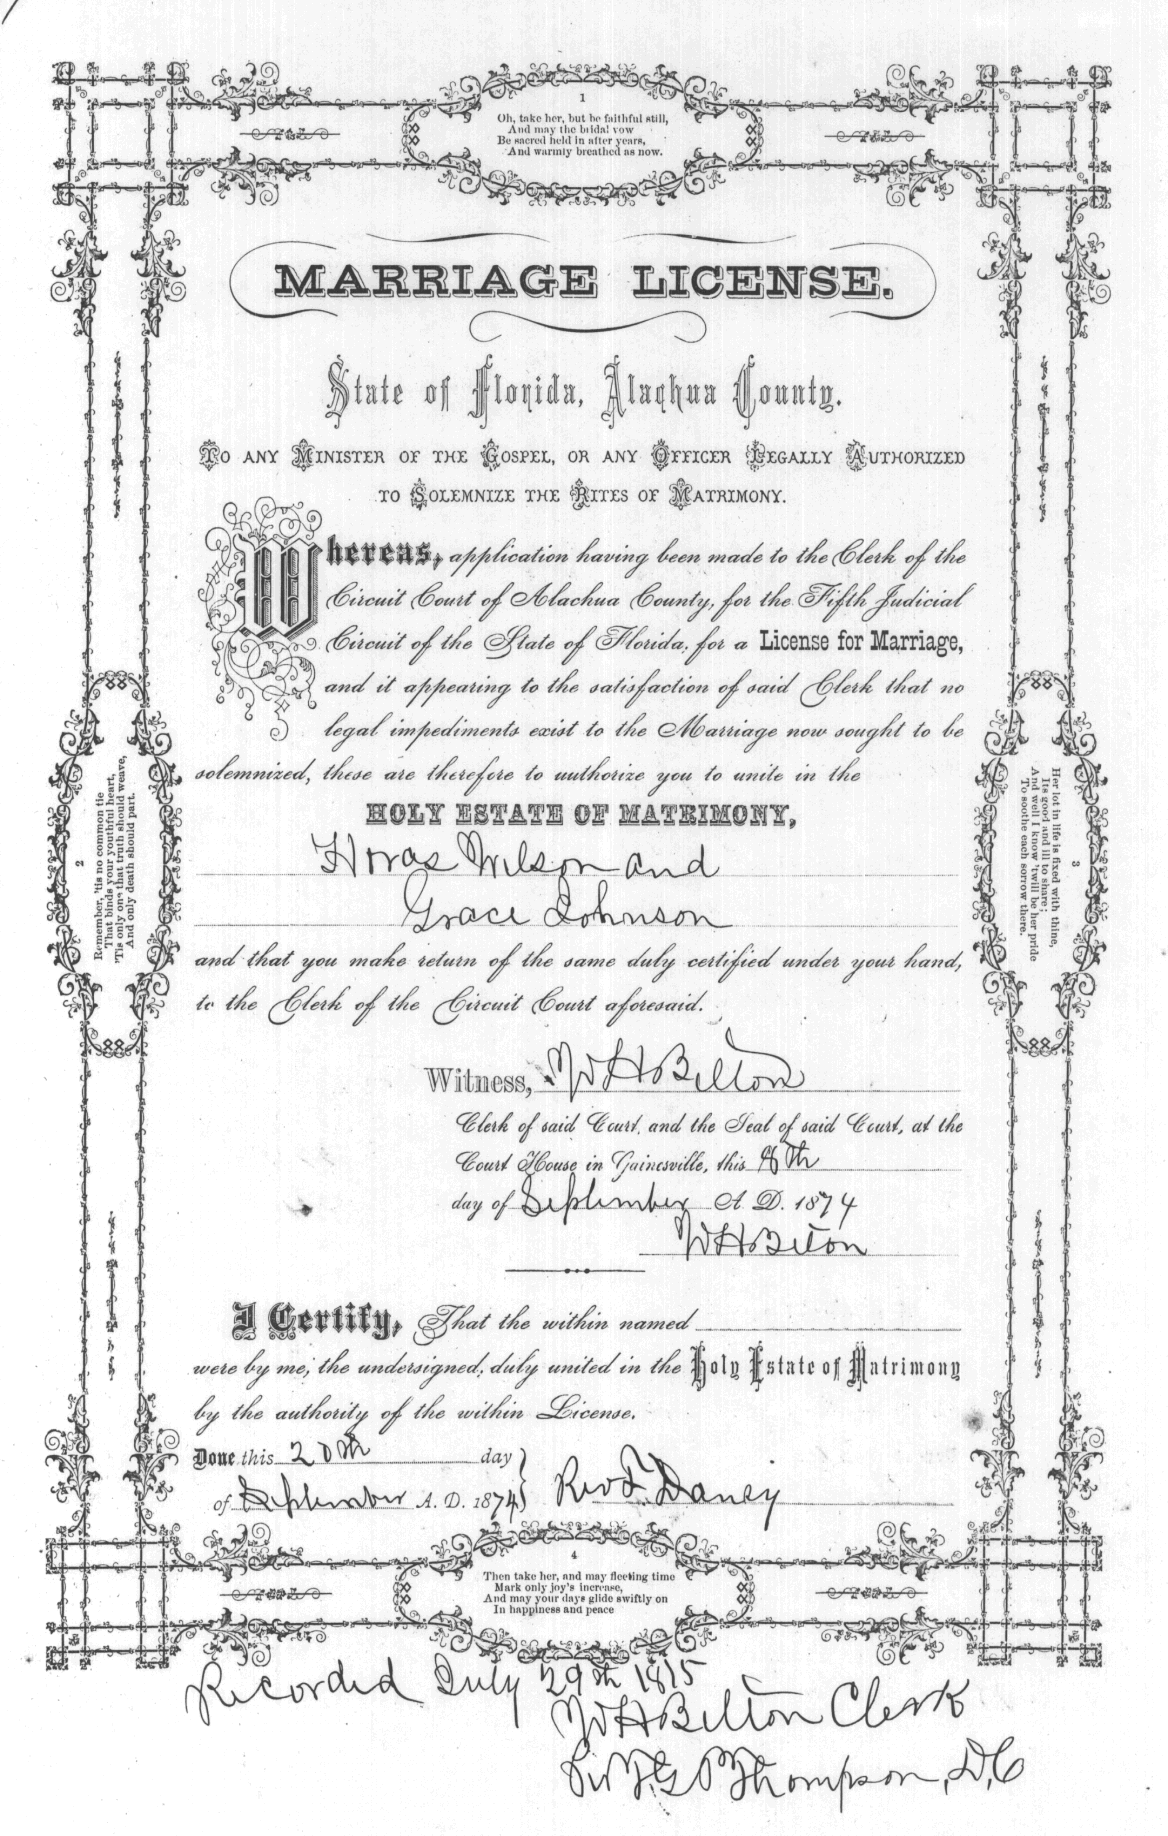 1
Oh, take her, but be faithful still,
And may the bridal vow
Be sacred held in after years,
And warmly breathed as now.
MARRIAGE LICENSE.
State of Florida, Alachua County.
TO ANY MINISTER OF THE GOSPEL, OR ANY OFFICER LEGALLY AUTHORIZED
TO SOLEMNIZE THE RITES OF MATRIMONY.
Whereas, application having been made to the Clerk of the
Circuit Court of Alachua County, for the Fifth Judicial
Circuit of the State of Florida, for a License for Marriage,
and it appearing to the satisfaction of said Clerk that no
legal impediments exist to the Marriage now sought to be
solemnized, these are therefore to authorize you to unite in the
HOLY ESTATE OF MATRIMONY,
Horas Wilson and
Grace Johnson
and that you make return of the same duly certified under your hand,
to the Clerk of the Circuit Court aforesaid.
Witness, W H Belton
Clerk of said Court, and the Seal of said Court, at the
Court House in Gainesville, this 8th
day of September A. D. 1874
W H Belton
I Certify, That the within named
were by me, the undersigned, duly united in the Holy Estate of Matrimony
by the authority of the within License.
Done this 20th day
of September A. D. 1874 } Rev F. Dancy
2
Remember, 'tis no common tie
That binds your youthful heart,
'Tis only one that truth should weave,
And only death should part.
3
Her lot in life is fixed with thine,
Its good and ill to share;
And well I know 'twill be her pride
To soothe each sorrow there.
4
Then take her, and may fleeting time
Mark only joy's increase,
And may your days glide swiftly on
In happiness and peace
Recorded July 29th 1875
W H Belton Clerk
Thompson, D.C